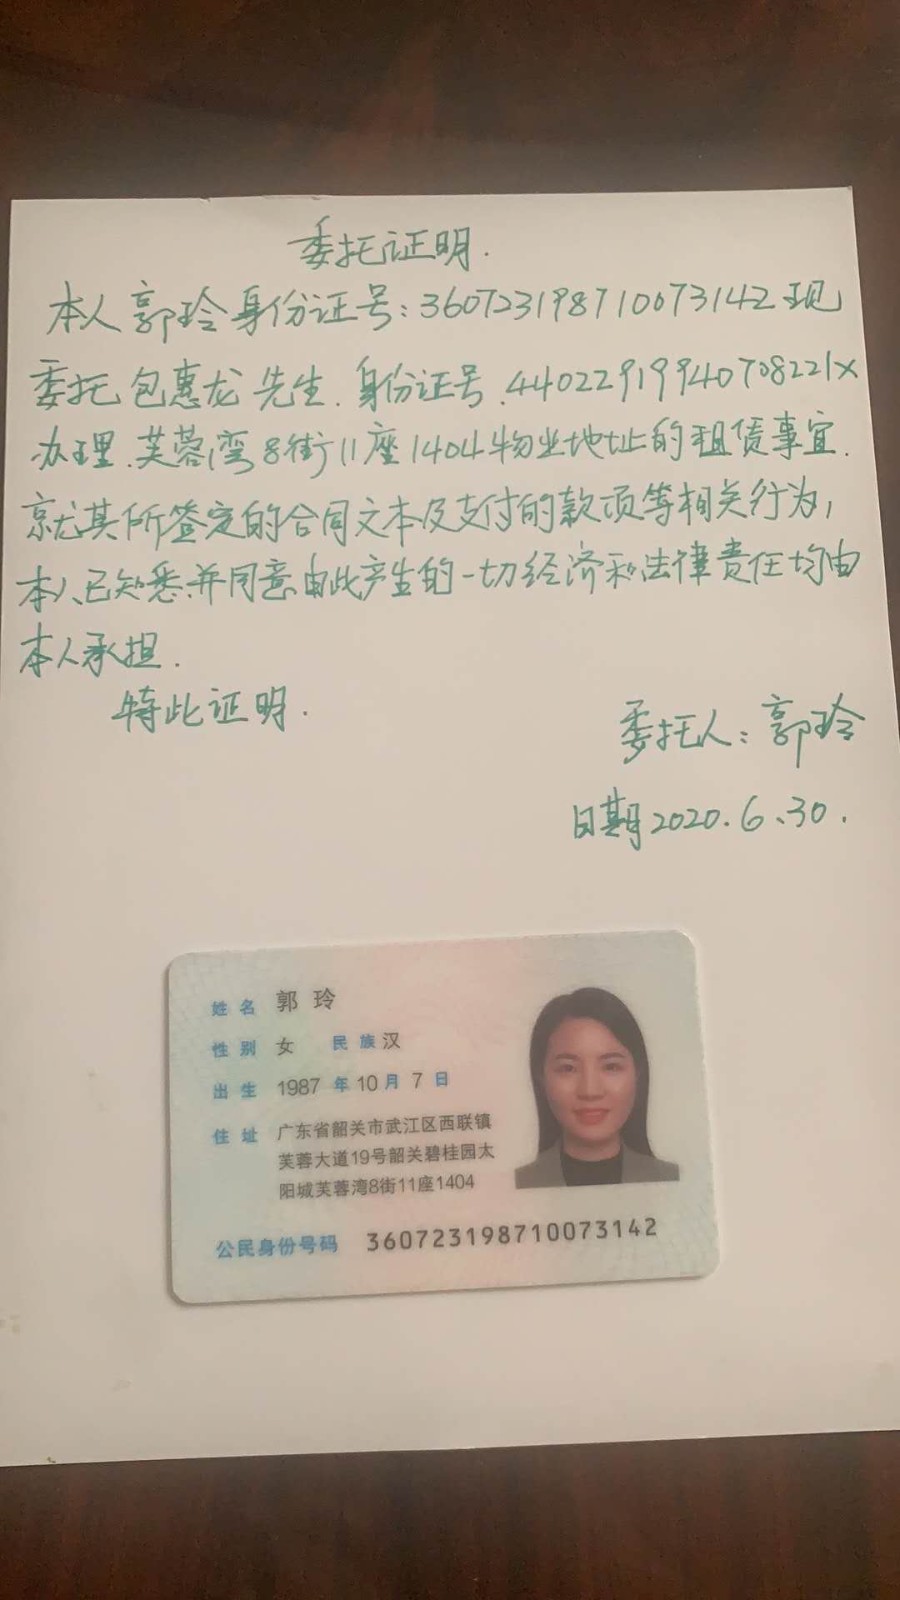 委托证明.
本人郭玲身份证号:360723198710073142现
委托包惠龙先生.身份证号.44022919940708221X
办理.芙蓉湾8街11座1404物业地址的租赁事宜.
就其所签定的合同文本及支付的款项等相关行为,
本人已知悉并同意由此产生的一切经济和法律责任均由
本人承担.
特此证明.
委托人:郭玲
日期2020.6.30.
姓名 郭玲
性别 女 民族 汉
出生 1987 年 10 月 7 日
住址 广东省韶关市武江区西联镇
芙蓉大道19号韶关碧桂园太
阳城芙蓉湾8街11座1404
公民身份号码 360723198710073142